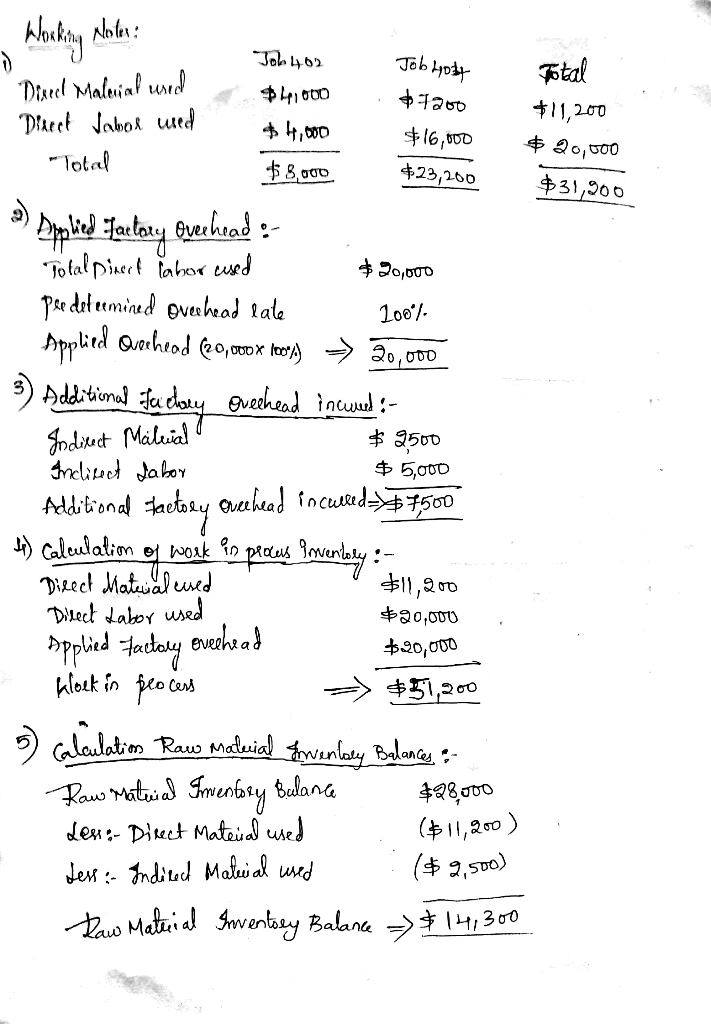 Working Notes:
1) Job 402 Job 404 Total
Direct Material used $4,000 $7200 $11,200
Direct Labor used $4,000 $16,000 $20,000
Total $8,000 $23,200 $31,200
2) Applied Factory Overhead :-
Total Direct labor used $20,000
Predetermined overhead rate 100%
Applied Overhead (20,000x100%) ⇒ 20,000
3) Additional Factory overhead incurred :-
Indirect Material $2500
Indirect Labor $5,000
Additional Factory overhead incurred ⇒ $7,500
4) Calculation of work in process Inventory :-
Direct Material used $11,200
Direct Labor used $20,000
Applied Factory overhead $20,000
Work in process ⇒ $51,200
5) Calculation Raw Material Inventory Balances :-
Raw Material Inventory Balance $28,000
Less:- Direct Material used ($11,200)
Less:- Indirect Material used ($2,500)
Raw Material Inventory Balance ⇒ $14,300